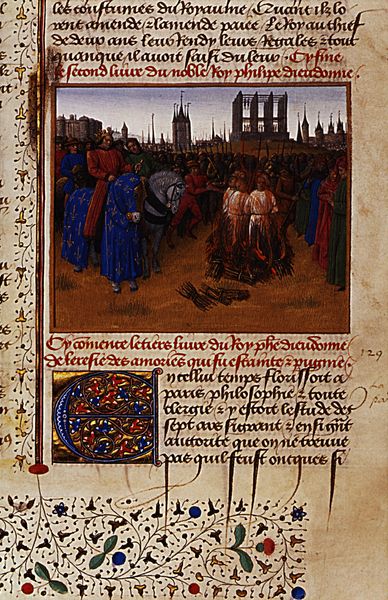 les constumes du Royaume. Et quant ilz lo
rent amende et lamende paiee. Le Roy au chief
de deux ans leur rendy leurs Regales et tout
quanque il avoit saisi du leur. Cy fine
le second livre du noble Roy phelipe dieudonne.
Cy comence le tiers livre du Roy phe dieudonne
de leresie des amoriens qui fu estainte et pugnie
En ycellui temps florissoit a
paris philosophie et toute
clergie et y estoit lestude des
sept ars si grant et en si grant
autorite que on ne treuve
pas quil feust oncques si